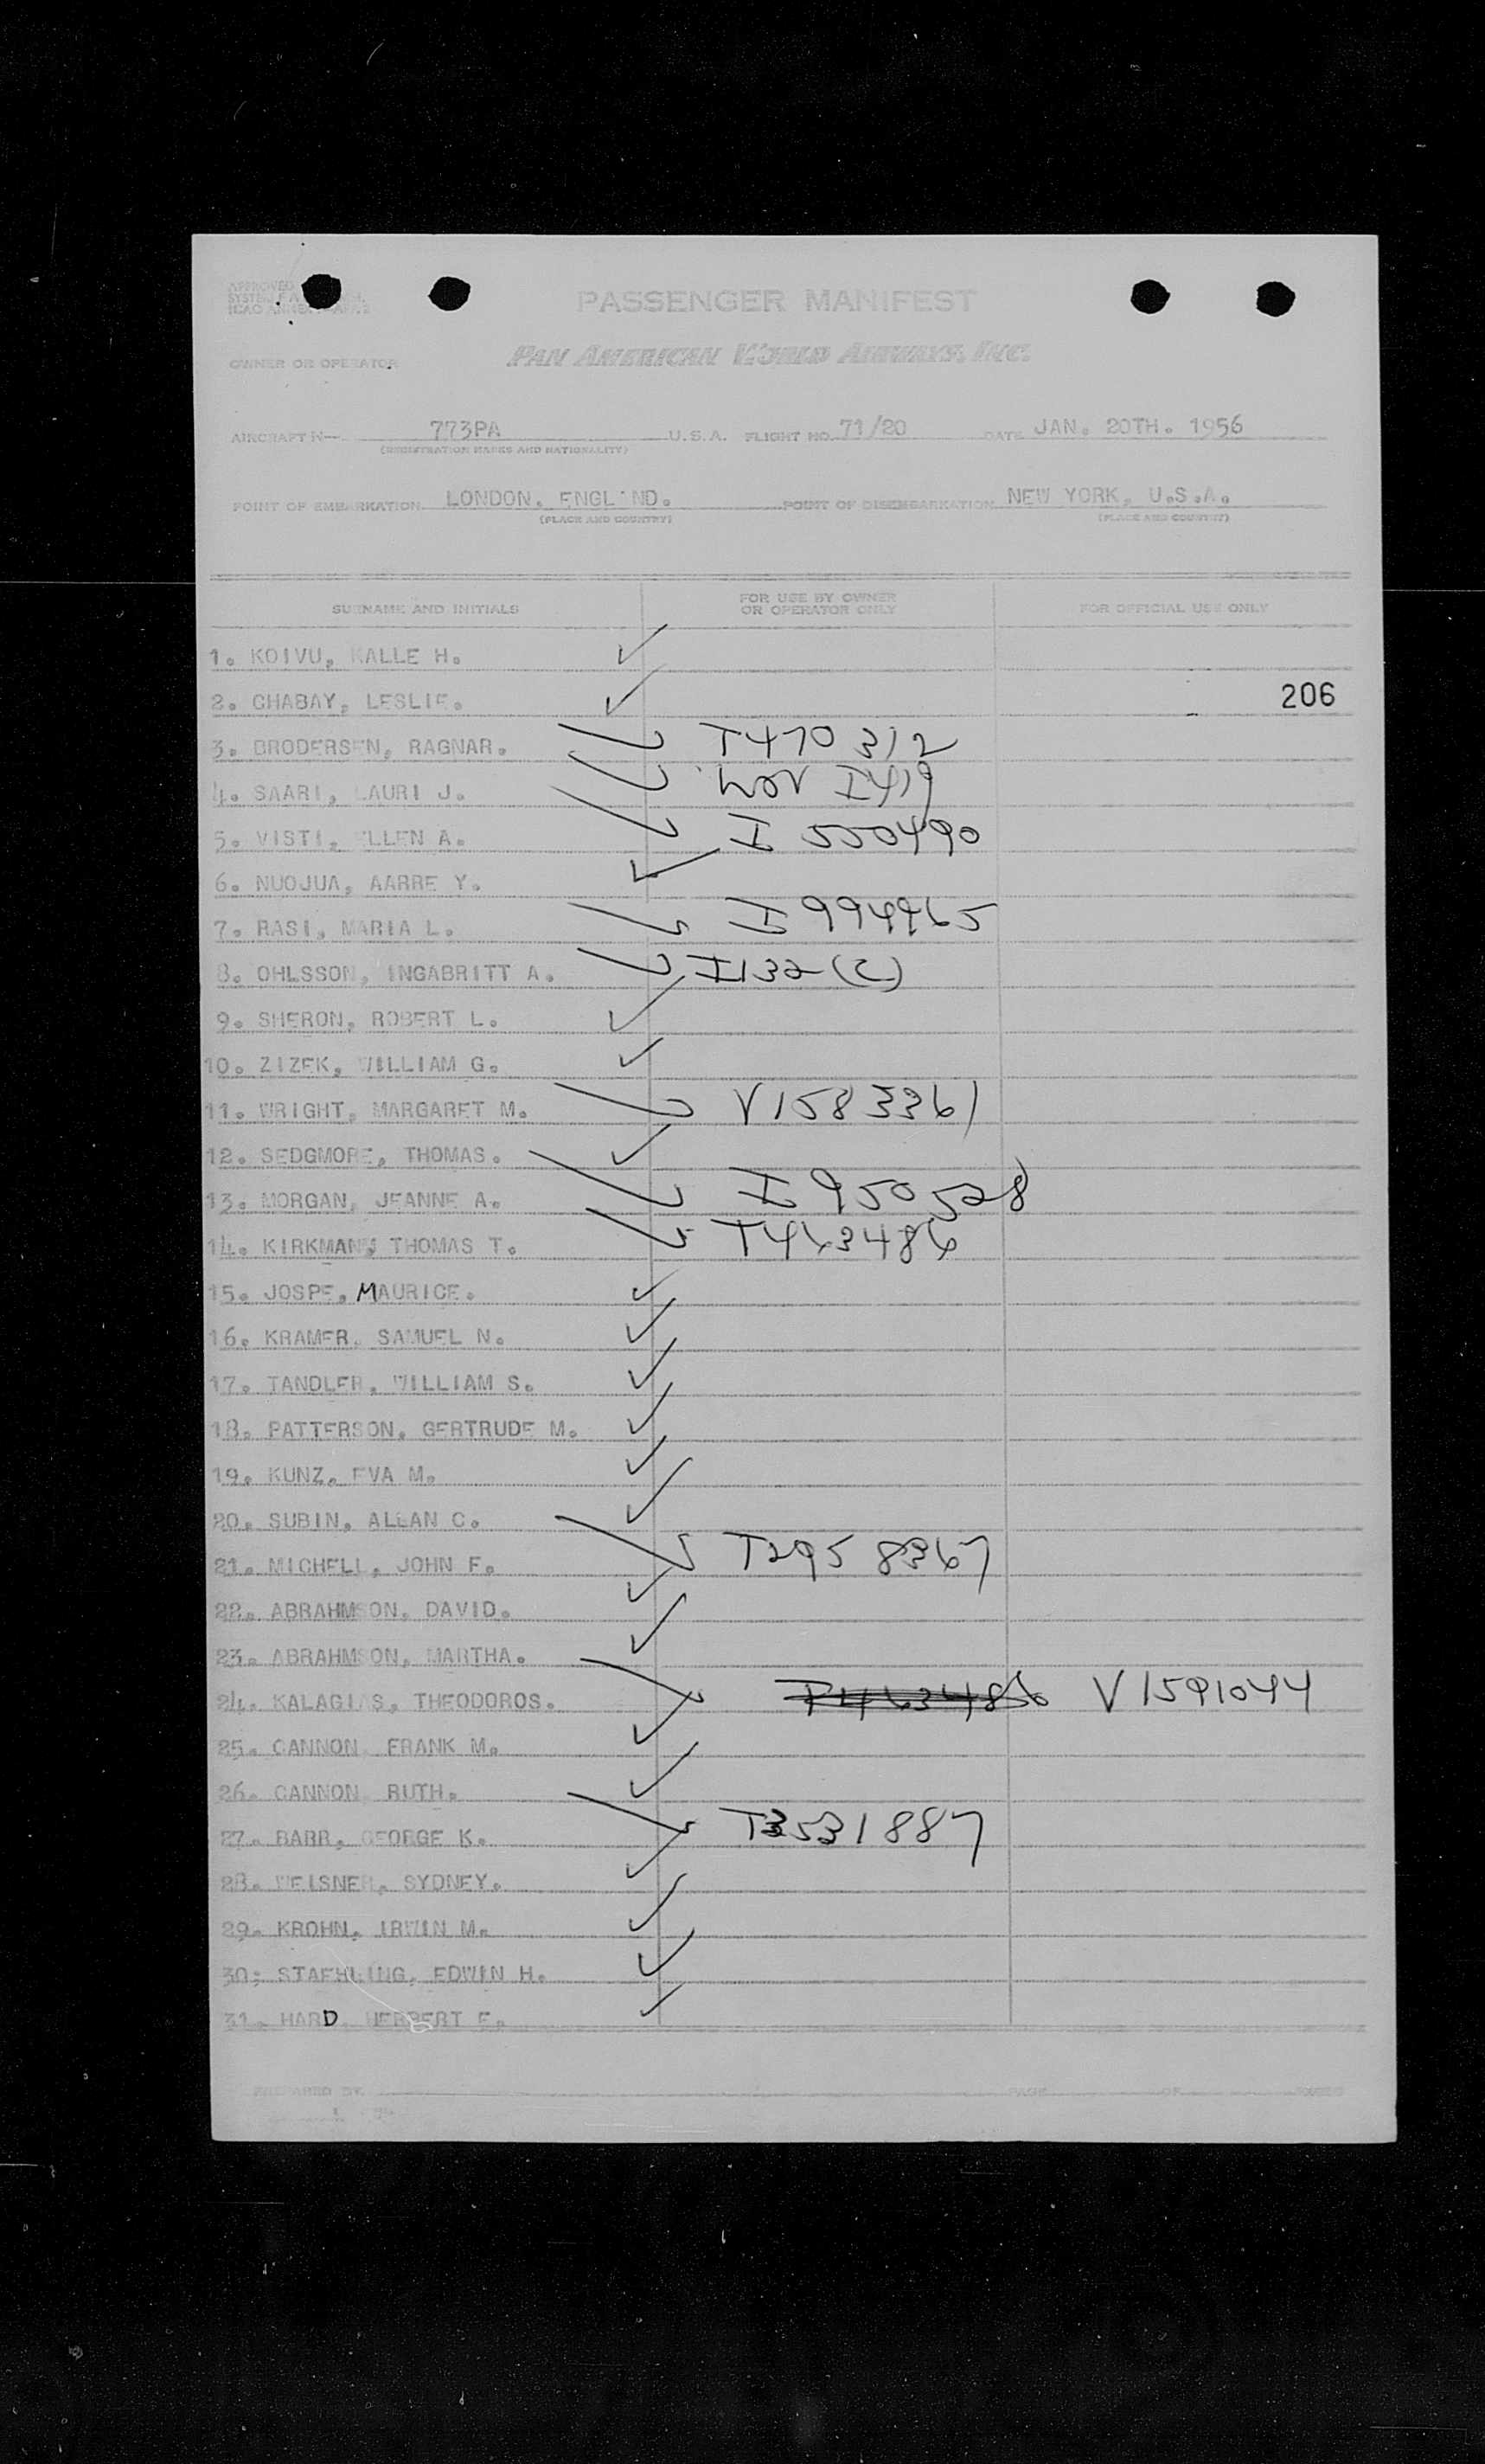 PASSENGER MANIFEST
OWNER OR OPERATOR PAN AMERICAN WORLD AIRWAYS, INC.
AIRCRAFT N— 773PA U.S.A. FLIGHT NO. 71/20 DATE JAN. 20TH. 1956
(REGISTRATION MARKS AND NATIONALITY)
POINT OF EMBARKATION LONDON. ENGLAND. POINT OF DISEMBARKATION NEW YORK, U.S.A.
(PLACE AND COUNTRY) (PLACE AND COUNTRY)
SURNAME AND INITIALS FOR USE BY OWNER OR OPERATOR ONLY FOR OFFICIAL USE ONLY
1. KOIVU, KALLE H. ✓
2. CHABAY, LESLIE. ✓ 206
3. BRODERSEN, RAGNAR. T470312
4. SAARI, LAURI J. I419
5. VISTI, ELLEN A. I 550490
6. NUOJUA, AARRE Y. ✓
7. RASI, MARIA L. I 994965
8. OHLSSON, INGABRITT A. I132(C)
9. SHERON, ROBERT L. ✓
10. ZIZEK, WILLIAM G. ✓
11. WRIGHT, MARGARET M. V1583361
12. SEDGMORE, THOMAS. ✓
13. MORGAN, JEANNE A. I 950528
14. KIRKMAN, THOMAS T. T463486
15. JOSPE, MAURICE. ✓
16. KRAMER, SAMUEL N. ✓
17. TANDLER, WILLIAM S. ✓
18. PATTERSON, GERTRUDE M. ✓
19. KUNZ, EVA M. ✓
20. SUBIN, ALLAN C. ✓
21. MICHELL, JOHN F. T295 8367
22. ABRAHMSON, DAVID. ✓
23. ABRAHMSON, MARTHA. ✓
24. KALAGIAS, THEODOROS. T463486 V1591044
25. CANNON, FRANK M. ✓
26. CANNON, RUTH. ✓
27. BARR, GEORGE K. T3531887
28. WEISNER, SYDNEY. ✓
29. KROHN, IRWIN M. ✓
30; STAEHLING, EDWIN H. ✓
31. HARD, HERBERT F. ✓
PREPARED BY PAGE OF PAGES